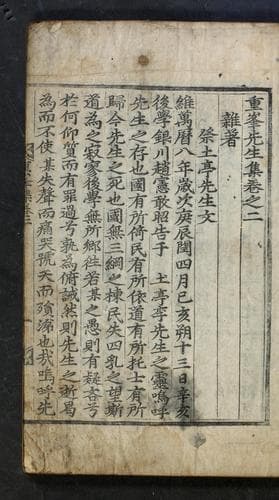 重峯先生集卷之二
雜著
祭土亭先生文
維萬曆八年歲次庚辰閏四月己亥朔十三日辛亥
後學銀川趙憲敢昭告于 土亭李先生之靈嗚呼
先生之存也國有所倚民有所依道有所托士有所
歸今先生之死也國無三綱之棟民失四乳之望斯
道為之寂寥後學無所鄉往若某之愚則有疑吝兮
於何仰質而有罪過兮孰為俯誠然則先生之逝曷
為而不使某失聲而痛哭號天而殞涕也我嗚呼先